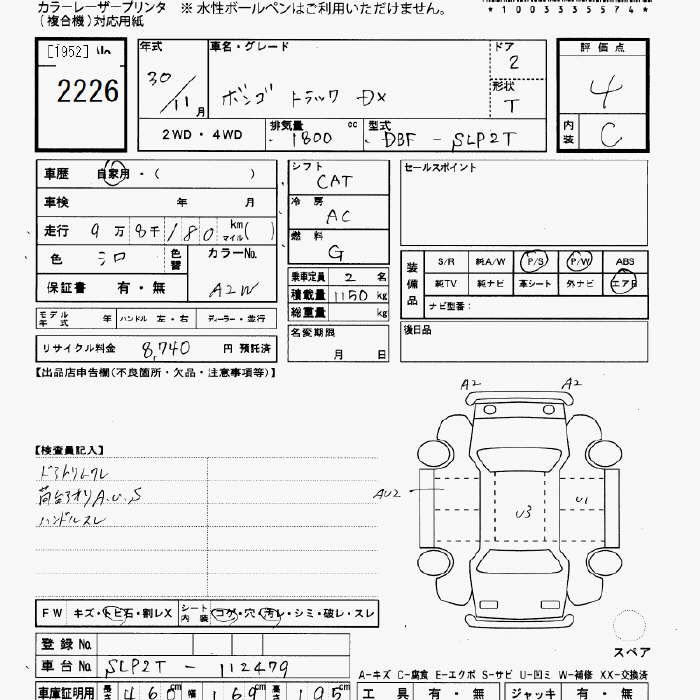 カラーレーザープリンタ ※ 水性ボールペンはご利用いただけません。
(複合機)対応用紙
*1003335574*
[1952]
2226
年式 30/11月
車名・グレード
ボンゴ トラック DX
ドア 2
形状 T
評価点 4
内装 C
2WD・4WD
排気量 1800 cc
型式 DBF - SLP2T
車歴 自家用・( )
車検 年 月
走行 9万8千180 km マイル( )
色 シロ 色替
カラーNo. A2W
保証書 有・無
モデル年式 年 ハンドル 左・右 ディーラー・並行
リサイクル料金 8,740 円 預託済
シフト CAT
冷房 AC
燃料 G
乗車定員 2 名
積載量 1150 kg
総重量 kg
名変期限
月 日
セールスポイント
装備品
S/R 純A/W P/S P/W ABS
純TV 純ナビ 革シート 外ナビ エアB
ナビ型番:
後日品
【出品店申告欄(不良箇所・欠品・注意事項等)】
【検査員記入】
ドアトリムクレ
荷台アオリA.U.S
ハンドルスレ
A2 A2
AU2
U3
U1
スペア
FW キズ・トビ石・割レX
シート内装 コゲ・穴・汚レ・シミ・破レ・スレ
登録No.
車台No. SLP2T - 112479
A-キズ C-腐食 E-エクボ S-サビ U-凹ミ W-補修 XX-交換済
車庫証明用 長さ 460cm 幅 169cm 高さ 195cm
工具 有・無 ジャッキ 有・無